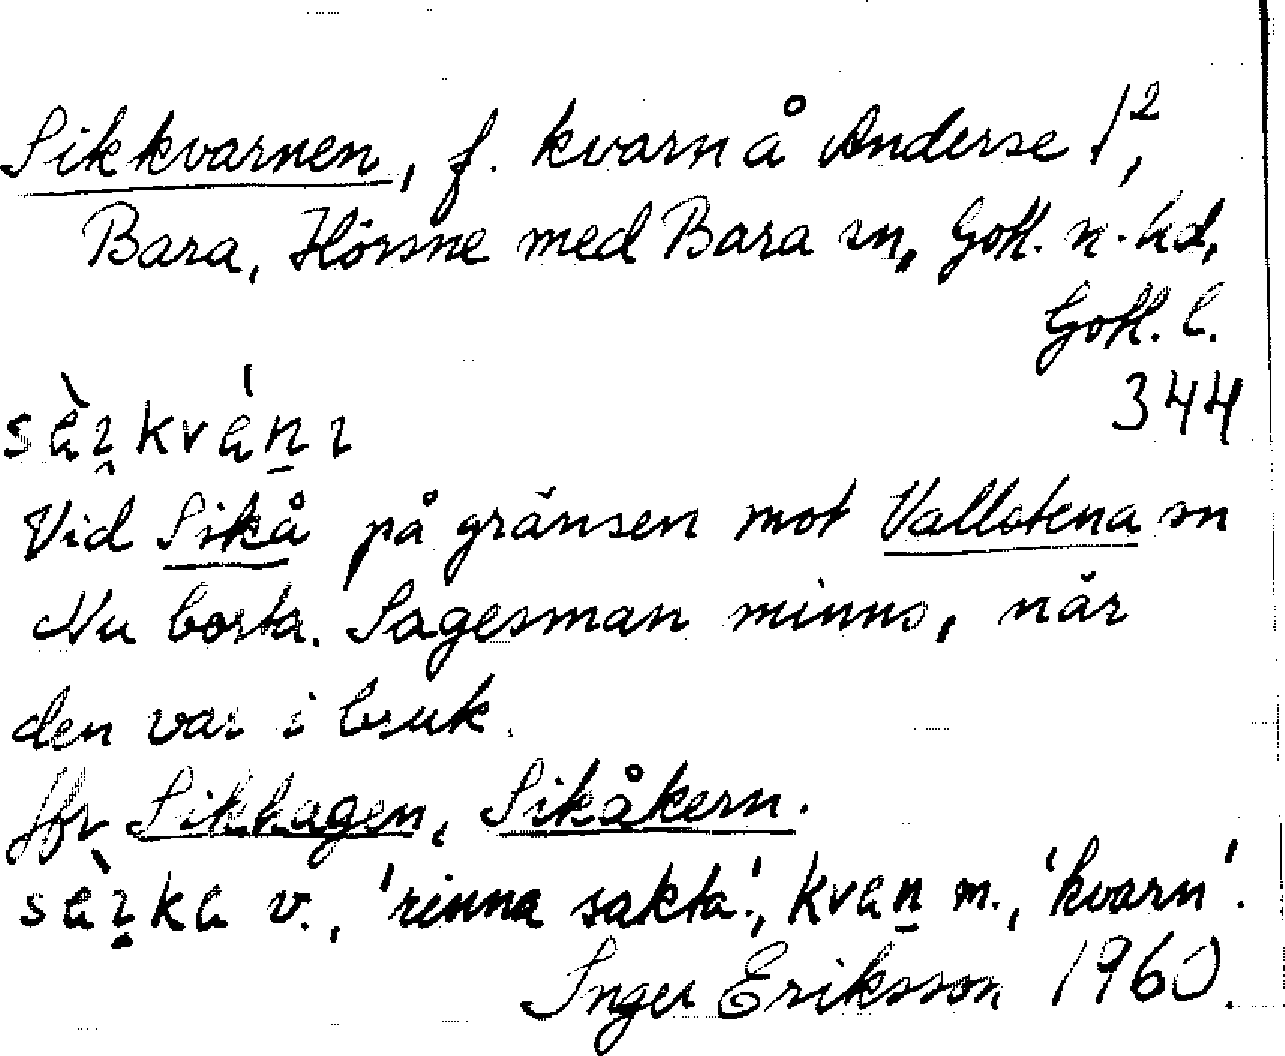 Sikkvarnen, f. kvarn å Anderse 1²,
Bara, Hörsne med Bara sn, Gotl. n. hd,
Gotl. l.
344
Vid Sikå på gränsen mot Vallstena sn
Nu borta. Sagesman minns, när
den var i bruk.
Jfr Sikhagen, Sikåkern.
v., 'rinna sakta', kvan̲ m., 'kvarn'.
Inger Eriksson 1960.